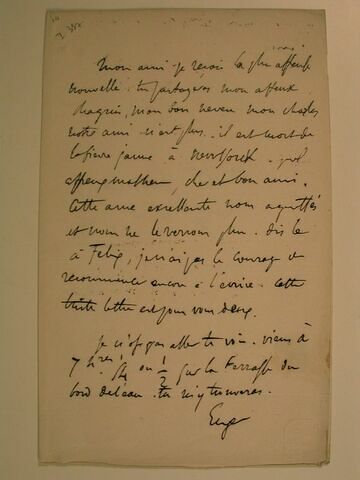 I 382
mon ami je reçois la plus affreuse
nouvelle. tu partageras mon affreux
chagrin, mon bon neveu mon charles
notre ami n'est plus. il est mort de
la fievre jaune à Newyork. quel
affreux malheur, cher et bon ami.
Cette ame excellente nous a quittés
et nous ne le verrons plus. dis le
à Felix, je n'ai pas le courage de
recommencer encore à l'écrire. Cette
triste lettre est pour vous deux.
je n'ose pas aller te voir. viens à
7 h. 1/4 ou 1/2 sur la terrasse du
bord de l'eau. tu m'y trouveras.
Eug